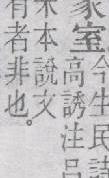 家室
今生民詩
高誘注呂
本說文
有者非也。